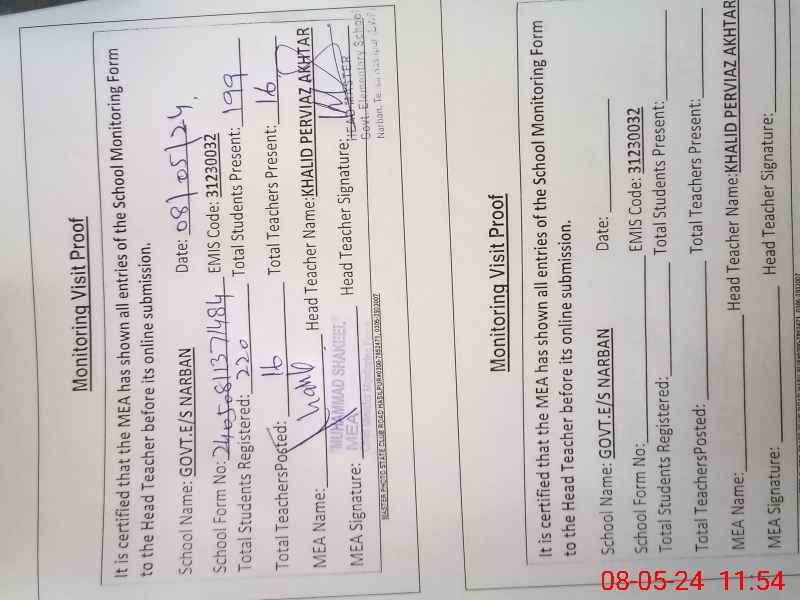 Monitoring Visit Proof
It is certified that the MEA has shown all entries of the School Monitoring Form
to the Head Teacher before its online submission.
School Name: GOVT.E/S NARBAN Date: 08/05/24,
School Form No: 240508113714 84 EMIS Code: 31230032
Total Students Registered: 220 Total Students Present: 199
Total TeachersPosted: 16 Total Teachers Present: 16
MEA Name: Head Teacher Name:KHALID PERVIAZ AKHTAR
MUHAMMAD SHAKEEL
MEA
MEA Signature: Head Teacher Signature:
HEAD MASTER
Govt. Elementary School
Narban, Te
MASTER PHOTO STATE CLUB ROAD HASILPUR
Monitoring Visit Proof
It is certified that the MEA has shown all entries of the School Monitoring Form
to the Head Teacher before its online submission.
School Name: GOVT.E/S NARBAN Date:
School Form No: EMIS Code: 31230032
Total Students Registered: Total Students Present:
Total TeachersPosted: Total Teachers Present:
MEA Name: Head Teacher Name:KHALID PERVIAZ AKHTAR
MEA Signature: Head Teacher Signature:
08-05-24 11:54